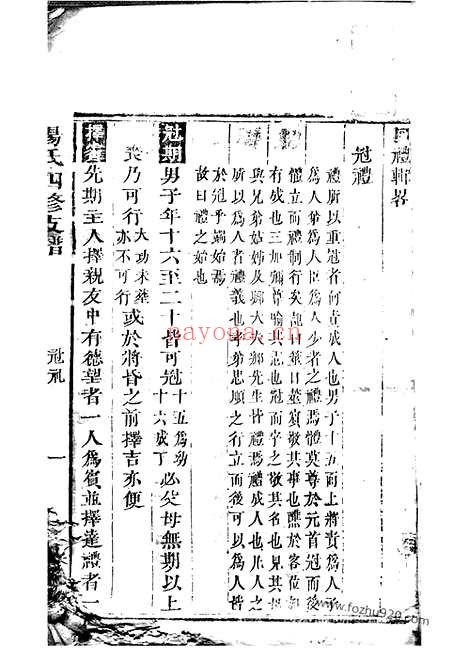 四禮輯畧
冠禮
禮所以重冠者何責成人也男子十五而上將責為人子
為人弟為人臣為人少者之禮焉體莫尊於元首冠而後
體立而禮制行矣故日筮賓敬其事也醮於客位加
有成也三加彌尊喻其志也冠而字之敬其名也見其母
與兄弟姑姊及鄉大夫鄉先生皆禮成人也凡人之
所以為人者禮義也孝弟忠順之行立而後可以為人皆
於冠乎始焉
故曰禮之始也
冠期男子年十六至二十皆可冠十五為幼十六成丁必父母無期以上
喪乃可行大功未葬亦不可行或於將昏之前擇吉亦便
擇賓先期主人擇親友中有德望者一人為賓並擇達禮者一
楊氏四修支譜
冠禮
一
nayona.cn
www.fozhu920.com